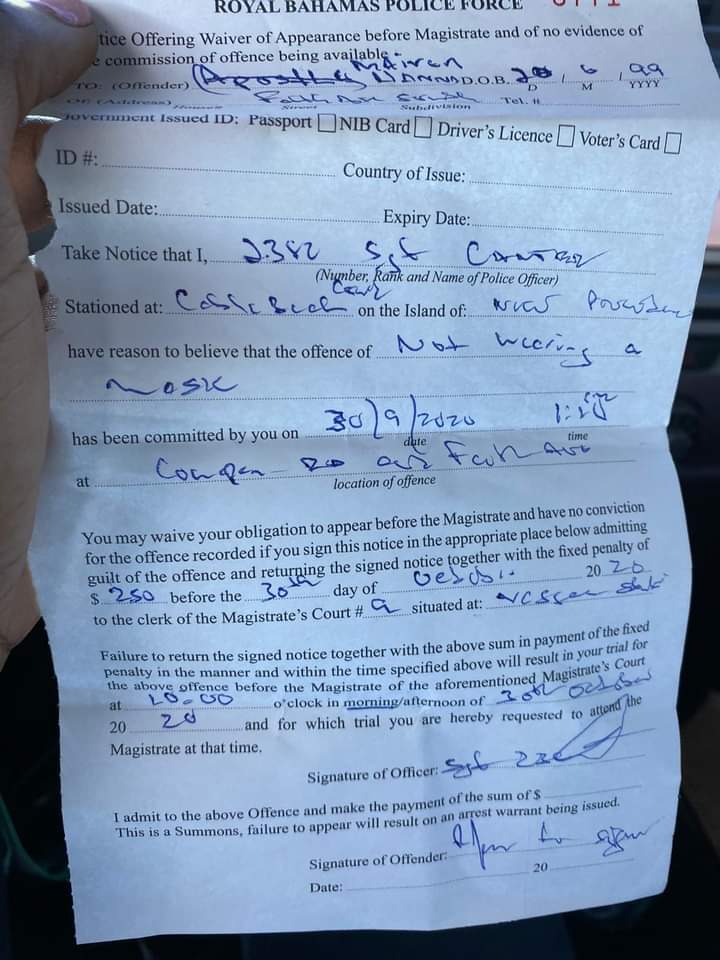 ROYAL BAHAMAS POLICE FORCE
tice Offering Waiver of Appearance before Magistrate and of no evidence of
e commission of offence being available
TO: (Offender) D.O.B. 20 / 6 / 99
D M YYYY
OF: (Address) House # Street Subdivision Tel. #
overnment Issued ID: Passport NIB Card Driver's Licence Voter's Card
ID #: Country of Issue:
Issued Date: Expiry Date:
Take Notice that I, 2382 Sgt
(Number, Rank and Name of Police Officer)
Stationed at: Cable Beach on the Island of: New Providence
have reason to believe that the offence of Not Wearing a
mask
has been committed by you on 30/9/2020
date time
at
location of offence
You may waive your obligation to appear before the Magistrate and have no conviction
for the offence recorded if you sign this notice in the appropriate place below admitting
guilt of the offence and returning the signed notice together with the fixed penalty of
$ 250 before the 30th day of October 20 20
to the clerk of the Magistrate's Court # 9 situated at:
Failure to return the signed notice together with the above sum in payment of the fixed
penalty in the manner and within the time specified above will result in your trial for
the above offence before the Magistrate of the aforementioned Magistrate's Court
at 10:00 o'clock in morning/afternoon of 30th October
20 20 and for which trial you are hereby requested to attend the
Magistrate at that time.
Signature of Officer: Sgt
I admit to the above Offence and make the payment of the sum of $
This is a Summons, failure to appear will result on an arrest warrant being issued.
Signature of Offender:
Date: 20